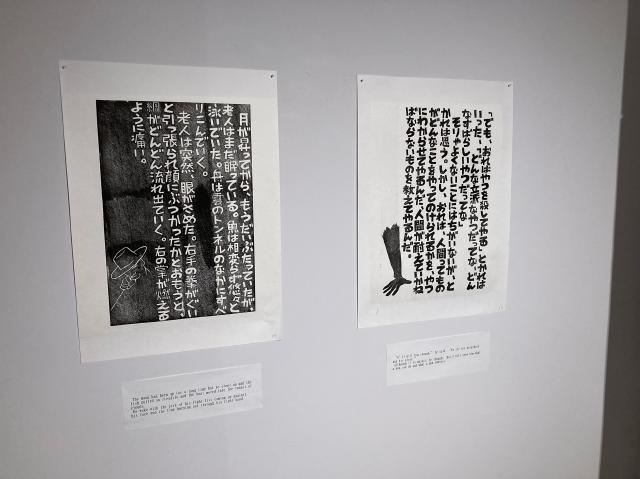 月が昇ってから、もうだいぶたっていたが、
老人はまだ眠っている。魚は相変らず悠々と
泳いでいた。舟は雲のトンネルのなかにすべ
りこんでいく。
老人は突然、眼がさめた。右手の拳がぐい
と引っ張られ顔にぶつかったかとおもうと、
綱がどんどん流れ出ていく。右の掌が燃える
ように痛い。
「でも、おれはやつを殺してやる」とかれは
いった、「どんな立派なやつだってな、どん
なすばらしいやつだってな」
そりゃよくないことにはちがいないが、と
かれは思う。しかし、おれは、人間ってもの
がどんなことをやってのけられるかを、やつ
にわからせてやるんだ、人間が耐えていかね
ばならないものを教えてやるんだ。
The moon had been up for a long time but he slept on and the
fish pulled on steadily and the boat moved into the tunnel of
clouds.
He woke with the jerk of his right fist coming up against
his face and the line burning out through his right hand.